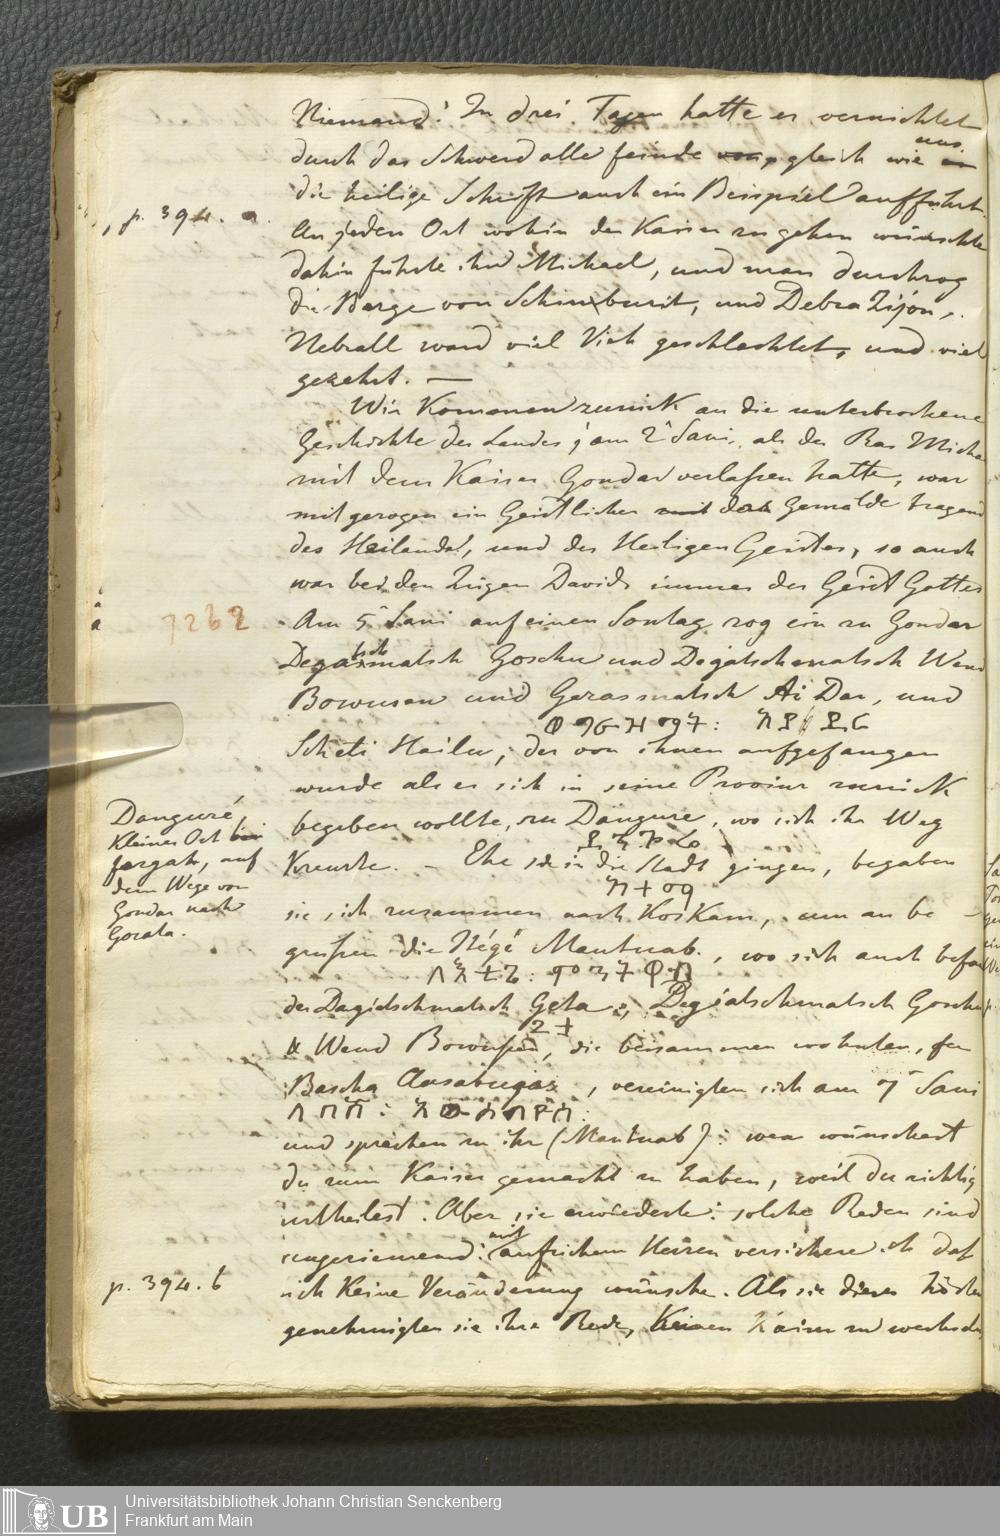 Niemand! In drei Tagen hatte er vernichtet
durch das Schwerd alle feinde gleich wie uns
die heilige Schrifft auch ein Beispiel aufführt.
p. 394. a.
An jeden Ort wohin der Kaiser zu gehen wünschte
dahin führte ihn Michael, und man durchzog
die Berge von Schin burit, und Debra Zijon,
Uebrall ward viel Vieh geschlachtet, und viel
gezehrt. —
Wir Kommen zurück an die unterbrochene
Geschichte des Landes; am 2t Sani, als der Ras Micha
mit dem Kaiser Gondar verlaßen hatte, war
mit gezogen ein Geistlicher das Gemälde tragend
des Heilandes, und des Heiligen Geistes, so auch
war bei den Zügen Davids immer der Geist Gottes
7262
Am 5t Sani auf einen Sontag zog ein zu Gondar
Degatschmatsch Goschu und Degatschmatsch Wend
Bowusen und Gerasmatsch Ai Dar, und
ወ ግራዝማች: አይ ዳር
Scheti Hailu, der von ihnen aufgefangen
wurde als er sich in seine Provinz zurück
begeben wollte, zu Dangure, wo sich ihr Weg
ደንጉሬ
Kreuzte. — Ehe sie in die Stadt gingen, begaben
sie sich zusammen nach KosKam, um zu be —
grußen die Itégé Mantuab, wo sich auch befan
der Dagiatschmatsch Geta; Degiatschmatsch Goschu
& Wend Bowusen, die beisammen wohnten, fer
Bascha Ausabugas, vereinigten sich am 7t Sani
und sprachen zu ihr (Mantuab): wen wünschest
du zum Kaiser gemacht zu haben, weil du richtig
urtheilest. Aber sie erwiederte: solche Reden sind
ungeziemend: mit aufrichem Herzen versichere ich daß
p. 394. b
ich Keine Veränderung wünsche. Als sie dieses hörten
genehmigten sie ihre Rede, Keinen Kaiser zu wechseln
Danguré,
Kleiner Ort bei
auf
dem Wege von
Gondar nach